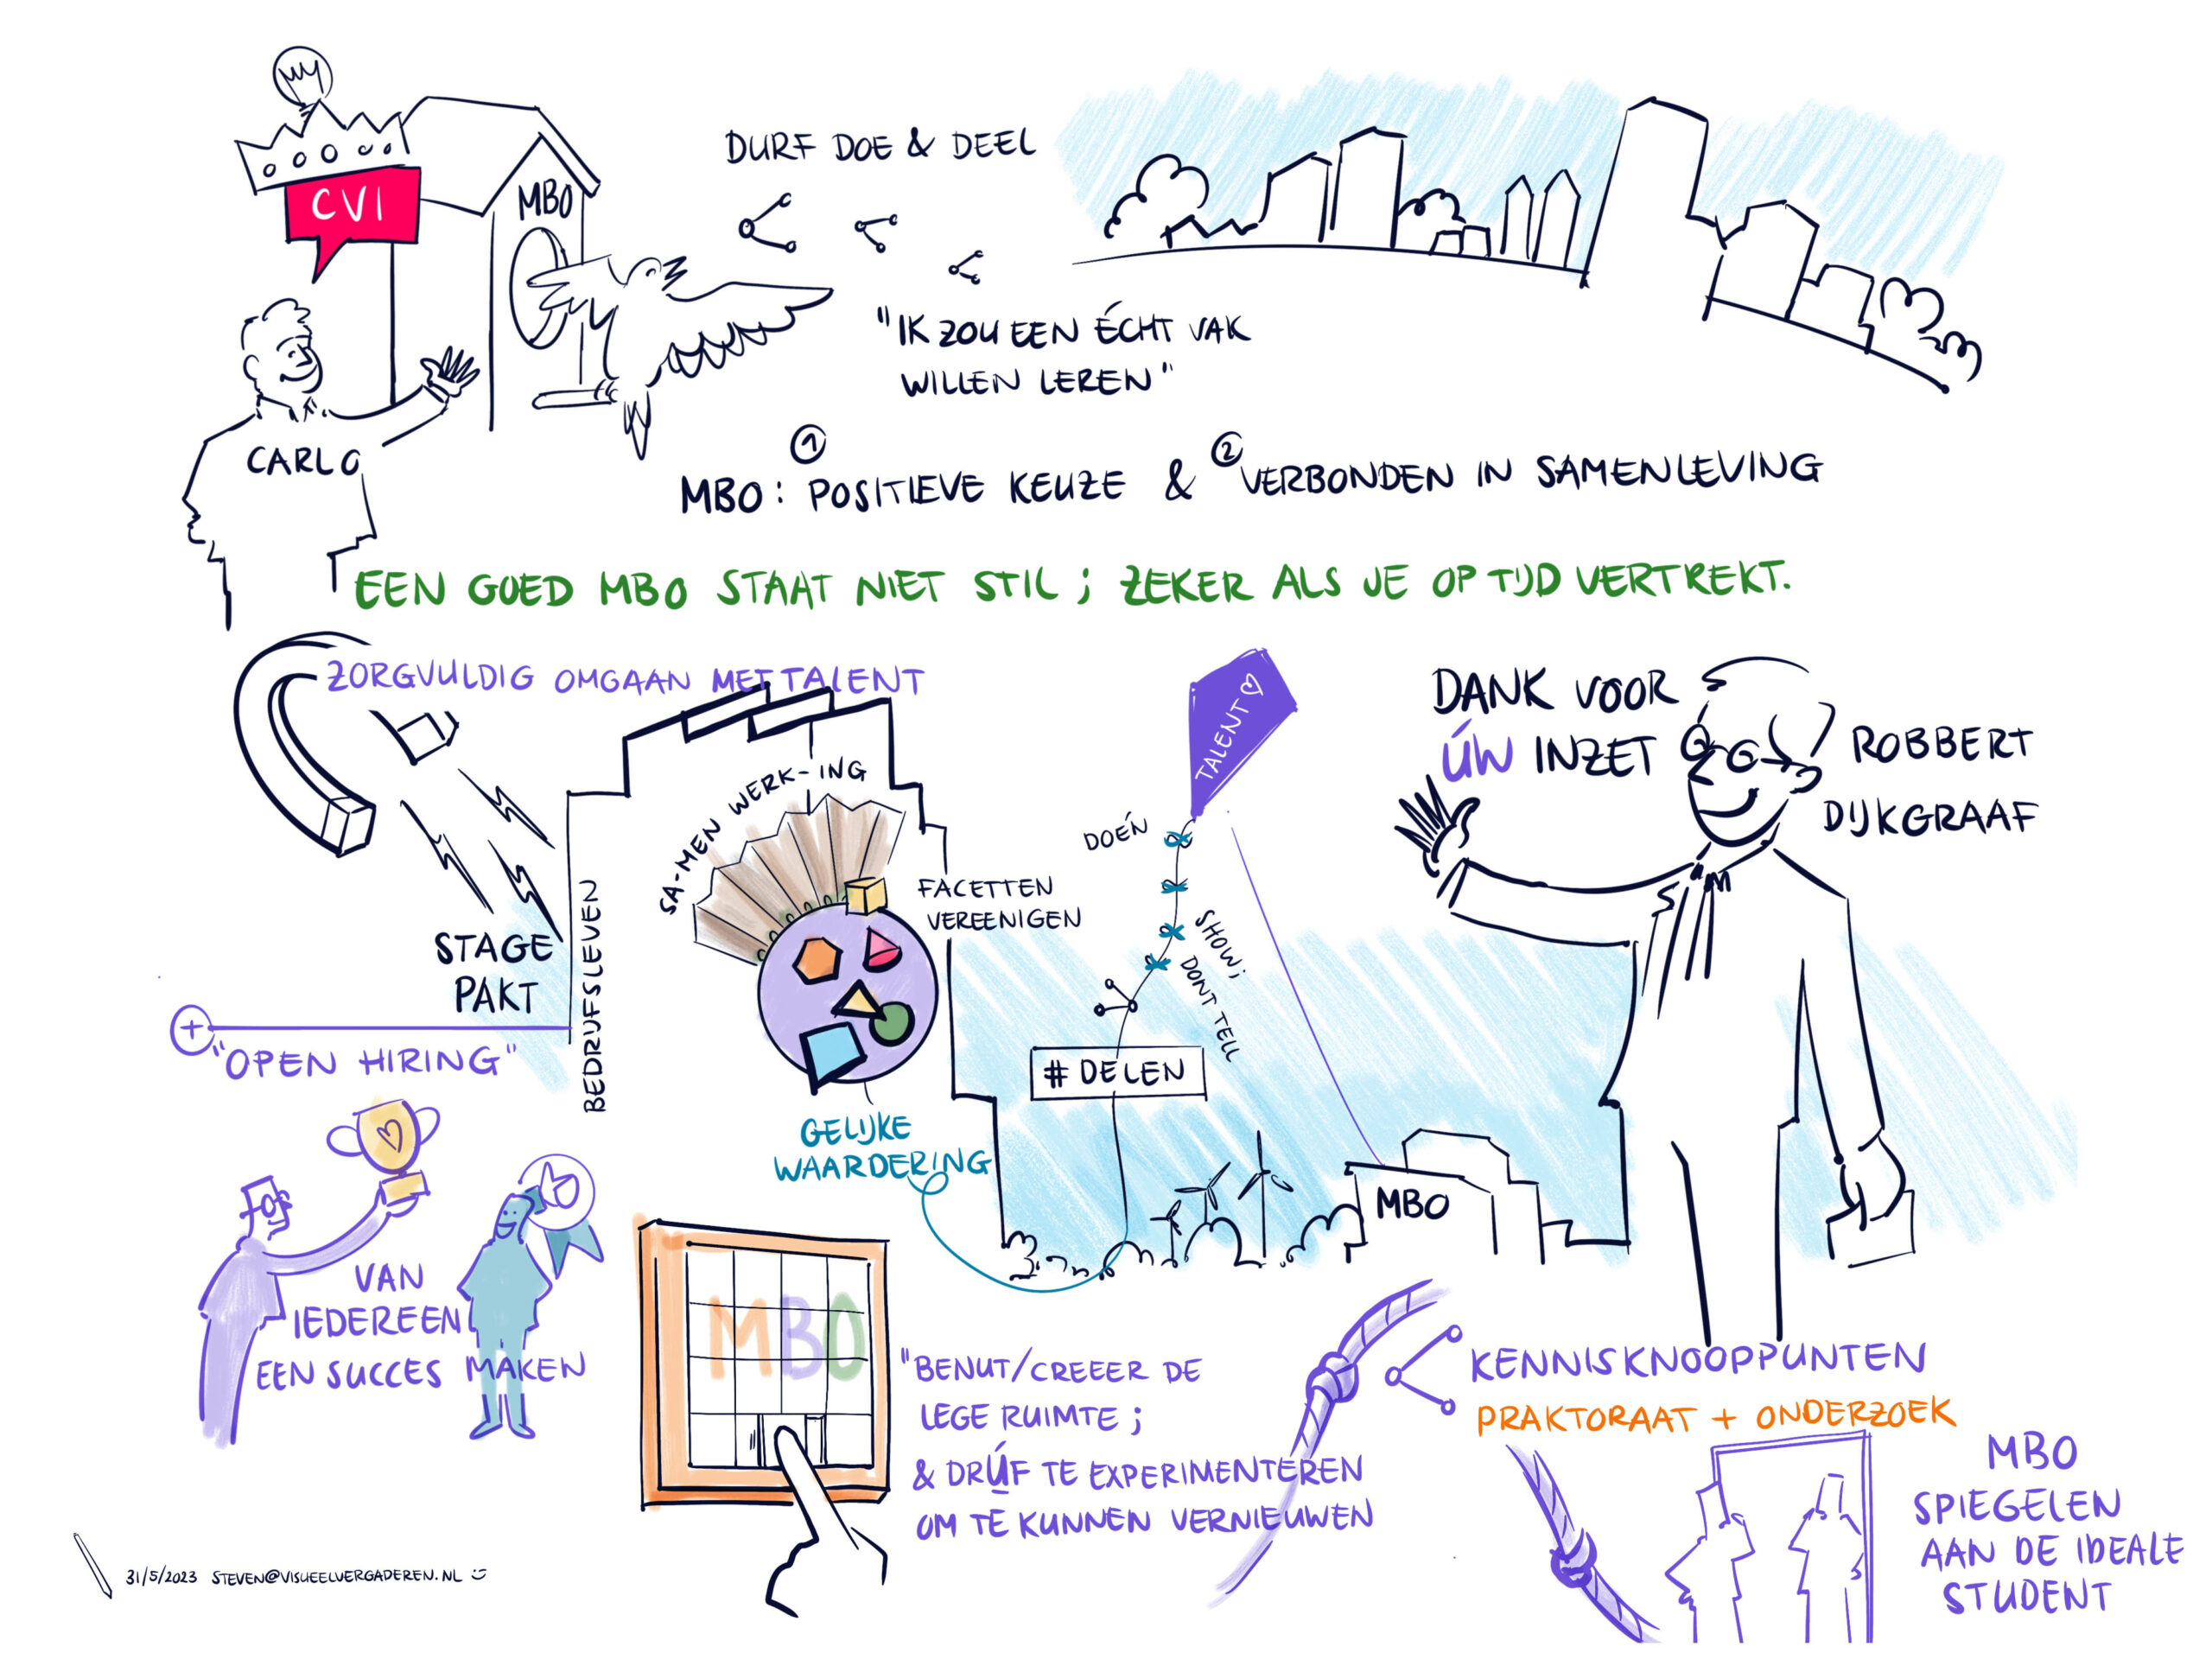 CVI
MBO
DURF DOE & DEEL
"IK ZOU EEN ÉCHT VAK
WILLEN LEREN"
CARLO
1
2
MBO: POSITIEVE KEUZE & VERBONDEN IN SAMENLEVING
EEN GOED MBO STAAT NIET STIL; ZEKER ALS JE OP TIJD VERTREKT.
ZORGVULDIG OMGAAN MET TALENT
STAGE
PAKT
BEDRIJFSLEVEN
+
"OPEN HIRING"
SA-MEN WERK-ING
FACETTEN
VEREENIGEN
GELIJKE
WAARDERING
TALENT
DOEN
SHOW;
DONT TELL
# DELEN
MBO
DANK VOOR
ÚW INZET
ROBBERT
DIJKGRAAF
VAN
IEDEREEN
EEN SUCCES MAKEN
MBO
"BENUT/CREEER DE
LEGE RUIMTE;
& DRÚF TE EXPERIMENTEREN
OM TE KUNNEN VERNIEUWEN
KENNISKNOOPPUNTEN
PRAKTORAAT + ONDERZOEK
MBO
SPIEGELEN
AAN DE IDEALE
STUDENT
31/5/2023 STEVEN@VISUEELVERGADEREN.NL